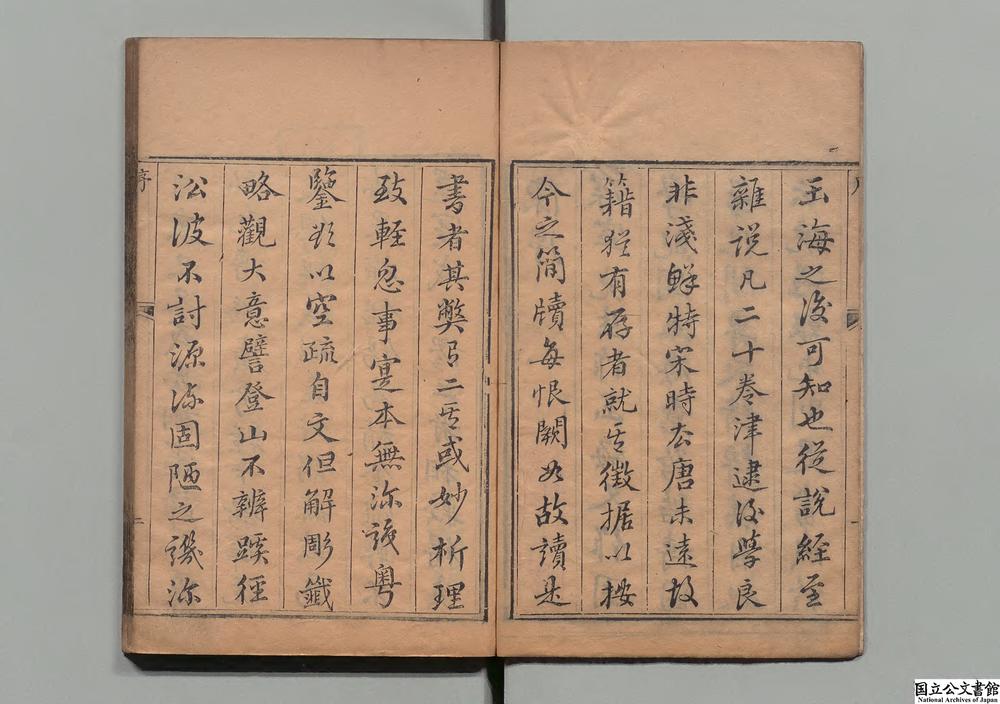 玉海之後可知也從說經至
雜說凡二十卷津逮後學良
非淺鮮特宋時去唐未遠故
籍猶有存者就其徵據以按
今之簡牘每恨闕如故讀是
書者其弊有二其或妙析理
致輕忽事寔本無深識奧
鑒欲以空疏自文但解彫籤
略觀大意譬登山不辨蹊徑
沿波不討源流固陋之譏深
序
二
国立公文書館
National Archives of Japan